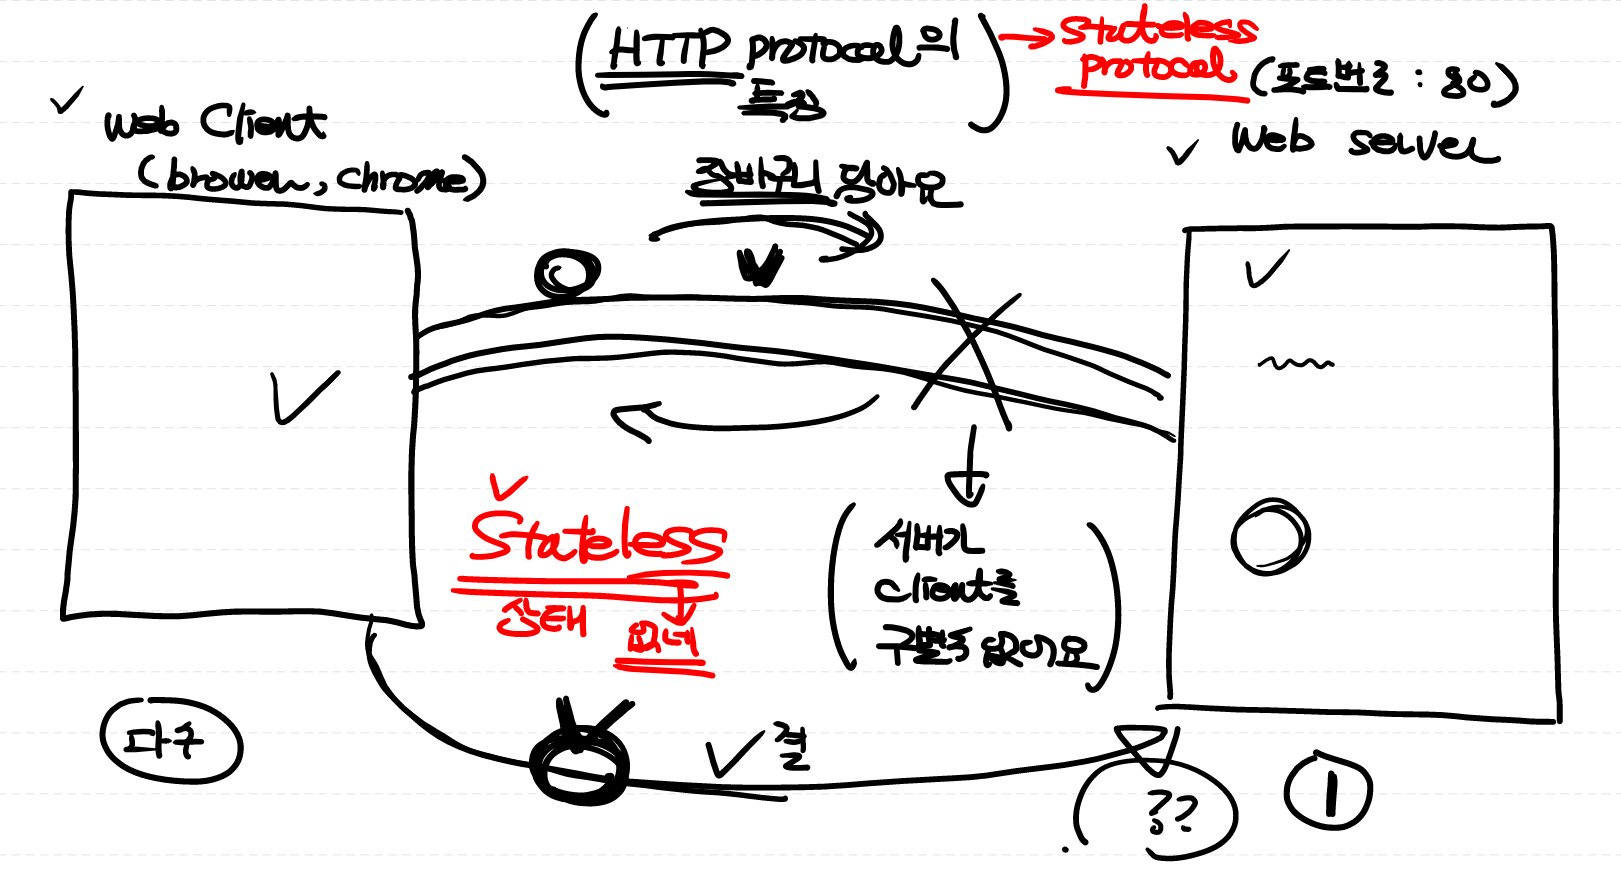 HTTP protocol의
특징
Stateless
protocol
(포트번호 : 80)
Web Client
(browser, chrome)
Web server
장바구니 담아요
Stateless
상태
없네
서버가
Client를
구별할 수 없어요
다수
결
??
1